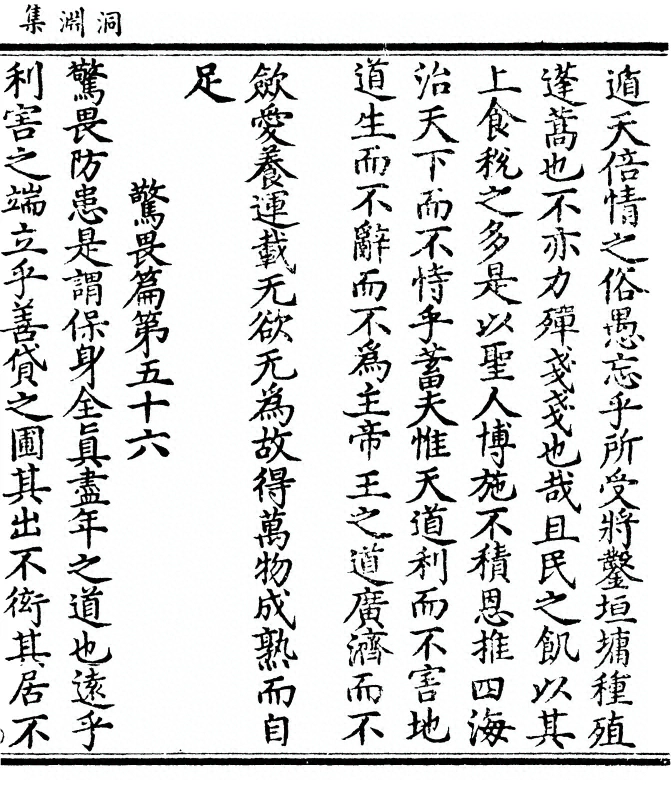 洞淵集
遁天倍情之俗愚忘乎所受將鑿垣墉種殖
蓬蒿也不亦力殫戔戔也哉且民之飢以其
上食稅之多是以聖人博施不積恩推四海
治天下而不恃乎蓄夫惟天道利而不害地
道生而不辭而不為主帝王之道廣濟而不
斂愛養運載无欲无為故得萬物成熟而自
足
驚畏篇第五十六
驚畏防患是謂保身全真盡年之道也遠乎
利害之端立乎善貸之圃其出不衒其居不